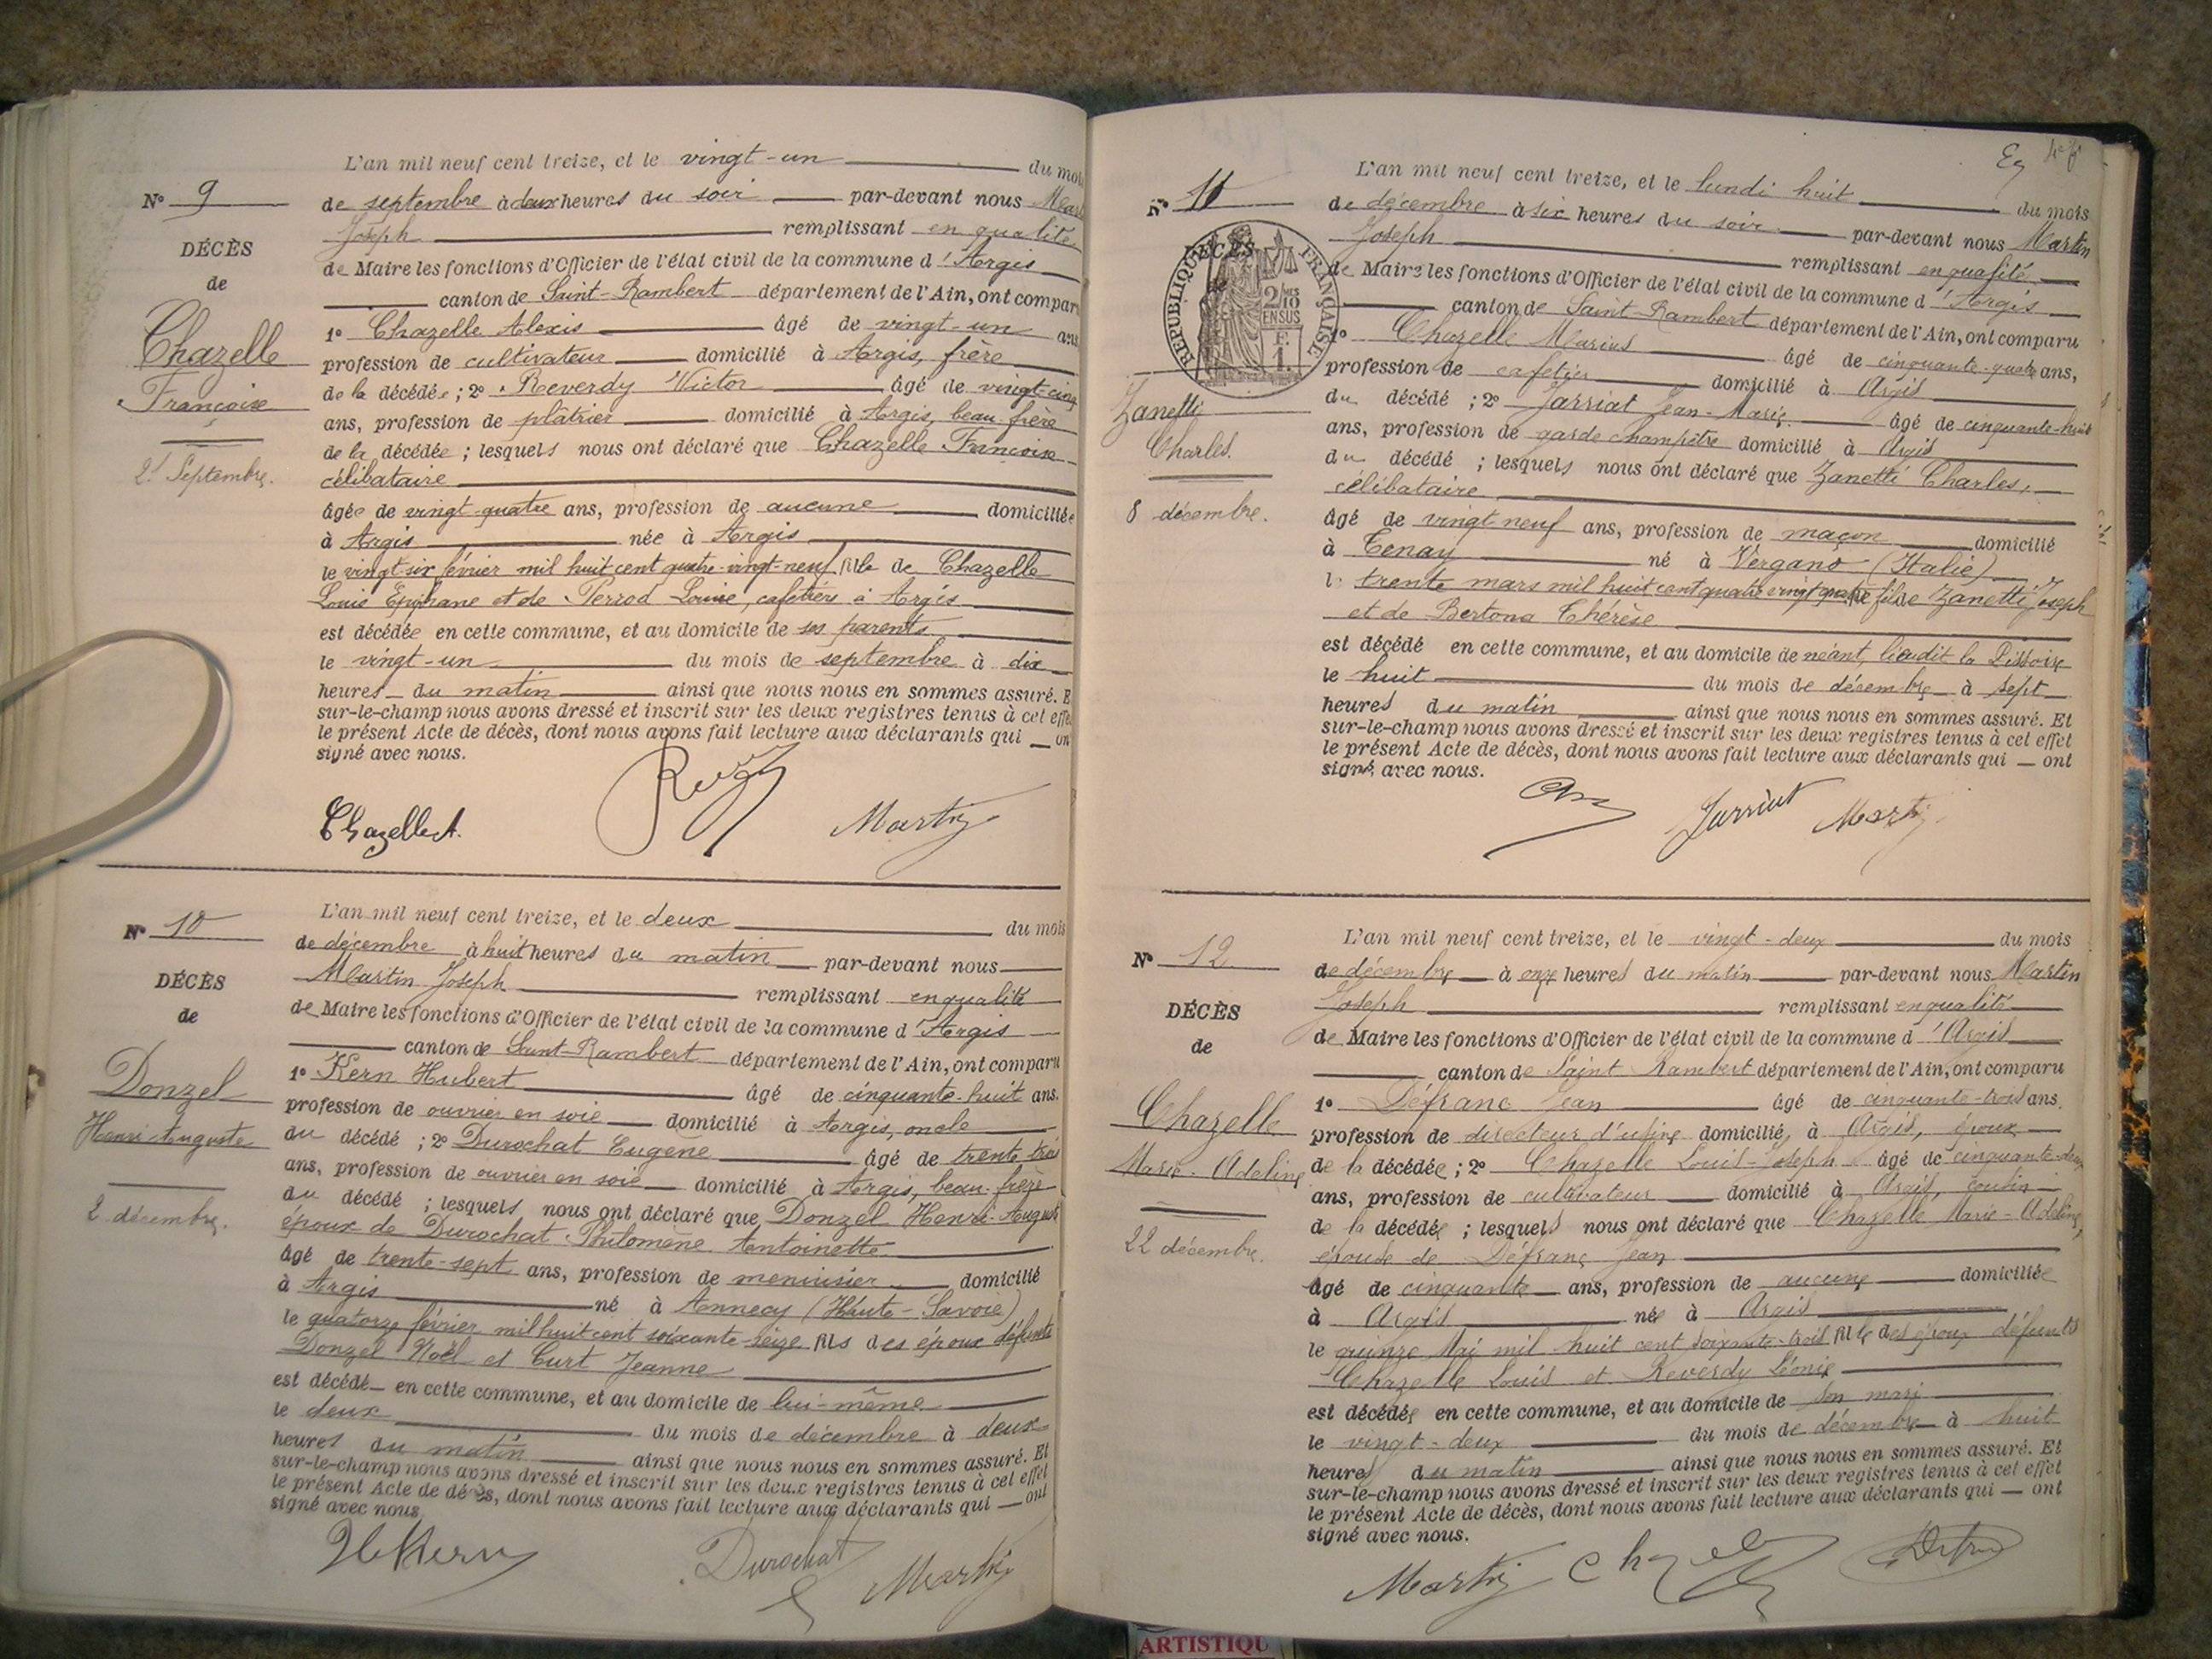 L'an mil neuf cent treize, et le vingt-un du mois
N° 9
de septembre à deux heures du soir par-devant nous
Joseph remplissant en qualité
DÉCÈS
de Maire les fonctions d'Officier de l'état civil de la commune d'Argis
de
canton de Saint-Rambert département de l'Ain, ont compar
1° Chazelle Alexis âgé de vingt-un ans
Chazelle
profession de cultivateur domicilié à Argis, frère
de la décédée ; 2° Reverdy Victor âgé de vingt-cinq
Françoise
ans, profession de plâtrier domicilié à Argis, beau-frère
de la décédée ; lesquels nous ont déclaré que Chazelle Françoise
21 Septembre.
célibataire
âgée de vingt-quatre ans, profession de aucune domiciliée
à Argis née à Argis
le vingt-six février mil huit cent quatre-vingt-neuf fille de Chazelle
Louis Epiphane et de Perrod Louise, cafetiers à Argis
est décédée en cette commune, et au domicile de ses parents
le vingt-un du mois de septembre à dix
heures du matin ainsi que nous nous en sommes assuré. E
sur-le-champ nous avons dressé et inscrit sur les deux registres tenus à cet effe
le présent Acte de décès, dont nous avons fait lecture aux déclarants qui on
signé avec nous.
Chazelle A. Martin
L'an mil neuf cent treize, et le deux du mois
N° 10
de décembre à huit heures du matin par-devant nous
Martin Joseph remplissant en qualité
DÉCÈS
de Maire les fonctions d'Officier de l'état civil de la commune d'Argis
de
canton de Saint-Rambert département de l'Ain, ont comparu
1° Kern Hubert âgé de cinquante-huit ans.
Donzel
profession de ouvrier en soie domicilié à Argis, oncle
Henri-Auguste
du décédé ; 2° Durochat Eugène âgé de trente troi
ans, profession de ouvrier en soie domicilié à Argis, beau-frère
2 décembre.
du décédé ; lesquels nous ont déclaré que Donzel Henri-August
époux de Durochat Philomène Antoinette
âgé de trente-sept ans, profession de menuisier domicilié
à Argis né à Annecy (Haute-Savoie)
le quatorze février mil huit cent soixante-seize fils des époux défunts
Donzel Noël et Curt Jeanne
est décédé en cette commune, et au domicile de lui-même
le deux du mois de décembre à deux
heures du matin ainsi que nous nous en sommes assuré. Et
sur-le-champ nous avons dressé et inscrit sur les deux registres tenus à cet effet
le présent Acte de décès, dont nous avons fait lecture aux déclarants qui ont
signé avec nous
H Kern Durochat Martin
L'an mil neuf cent treize, et le lundi huit du mois
N° 11
de décembre à six heures du soir par-devant nous Martin
Joseph remplissant en qualité
DÉCÈS
de Maire les fonctions d'Officier de l'état civil de la commune d'Argis
RÉPUBLIQUE FRANÇAISE
2/10 EN SUS
F. 1.
canton de Saint-Rambert département de l'Ain, ont comparu
1° Chazelle Marius âgé de cinquante-quatre ans,
profession de cafetier domicilié à Argis
Zanetti
du décédé ; 2° Jarriat Jean-Marie âgé de cinquante-huit
Charles.
ans, profession de garde champêtre domicilié à Argis
du décédé ; lesquels nous ont déclaré que Zanetti Charles,
8 décembre.
célibataire
âgé de vingt neuf ans, profession de maçon domicilié
à Tenay né à Vergano (Italie)
le trente mars mil huit cent quatre vingt quatre fils de Zanetti Joseph
et de Bertona Thérèse
est décédé en cette commune, et au domicile de néant, lieudit la Pissoire
le huit du mois de décembre à sept
heures du matin ainsi que nous nous en sommes assuré. Et
sur-le-champ nous avons dressé et inscrit sur les deux registres tenus à cet effet
le présent Acte de décès, dont nous avons fait lecture aux déclarants qui ont
signé avec nous.
Jarriat Martin
L'an mil neuf cent treize, et le vingt-deux du mois
N° 12
de décembre à onze heures du matin par-devant nous Martin
Joseph remplissant en qualité
DÉCÈS
de Maire les fonctions d'Officier de l'état civil de la commune d'Argis
de
canton de Saint Rambert département de l'Ain, ont comparu
1° Défranc Jean âgé de cinquante-trois ans
Chazelle
profession de directeur d'usine domicilié à Argis, époux
Marie-Adeline
de la décédée ; 2° Chazelle Louis-Joseph âgé de cinquante-deux
ans, profession de cultivateur domicilié à Argis, cousin
22 décembre.
de la décédée ; lesquels nous ont déclaré que Chazelle Marie-Adeline,
épouse de Défranc Jean
âgé de cinquante ans, profession de aucune domiciliée
à Argis née à Argis
le quinze Mai mil huit cent soixante-trois fille des époux défunts
Chazelle Louis et Reverdy Léonie
est décédée en cette commune, et au domicile de son mari
le vingt-deux du mois de décembre à huit
heures du matin ainsi que nous nous en sommes assuré. Et
sur-le-champ nous avons dressé et inscrit sur les deux registres tenus à cet effet
le présent Acte de décès, dont nous avons fait lecture aux déclarants qui ont
signé avec nous.
Martin
ARTISTIQU